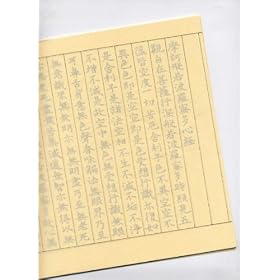 摩訶般若波羅蜜多心経
観自在菩薩行深般若波羅蜜多時照見五
蘊皆空度一切苦厄舎利子色不異空空不
異色色即是空空即是色受想行識亦復如
是舎利子是諸法空相不生不滅不垢不浄
不増不減是故空中無色無受想行識無眼
耳鼻舌身意無色声香味触法無眼界乃至
無意識界無無明亦無無明尽乃至無老死